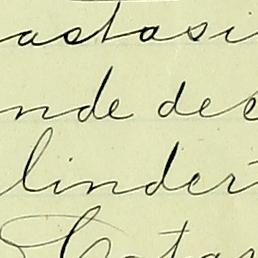 astasi
nde dec
linder
Catar